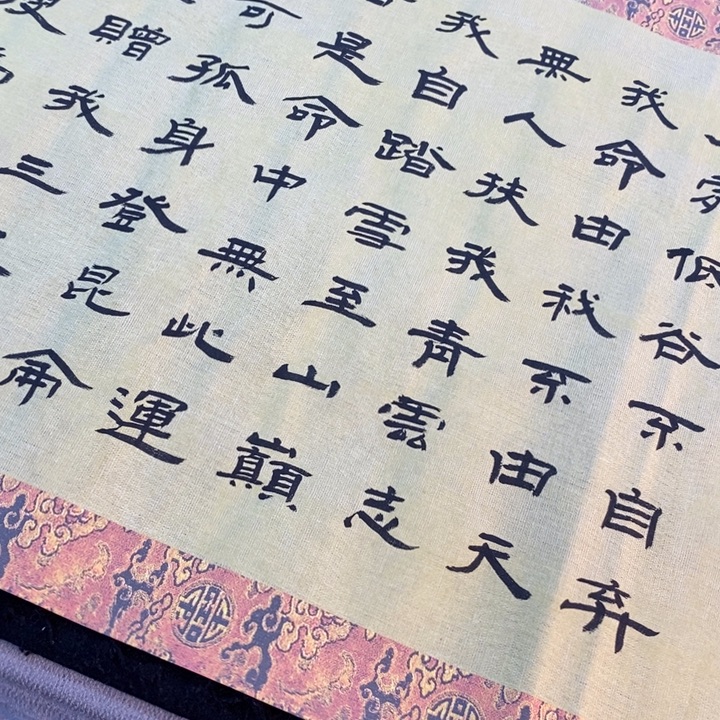 低谷不自弃
我命由我不由天
無人扶我青雲志
我自踏雪至山巔
是命中無此運
可孤身登昆侖
贈我三